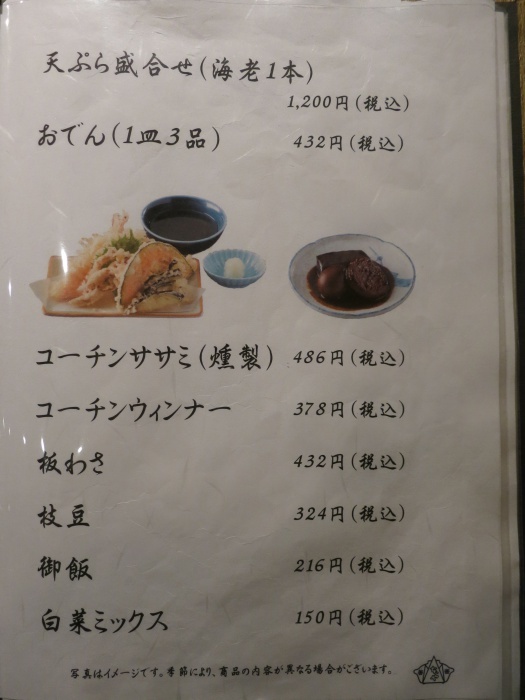 天ぷら盛合せ(海老1本)
1,200円(税込)
おでん(1皿3品) 432円(税込)
コーチンササミ(燻製) 486円(税込)
コーチンウィンナー 378円(税込)
板わさ 432円(税込)
枝豆 324円(税込)
御飯 216円(税込)
白菜ミックス 150円(税込)
写真はイメージです。季節により、商品の内容が異なる場合がございます。